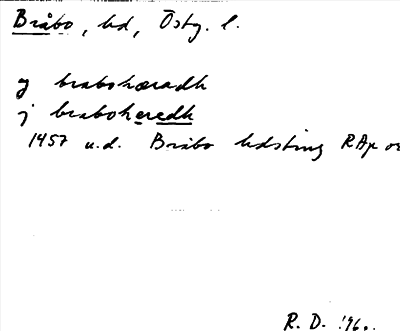 Bråbo, hd, Östg. l.
J brabohæradh
j braboheredh
1457 u.d. Bråbo hdsting RAp or
R. D. '96.